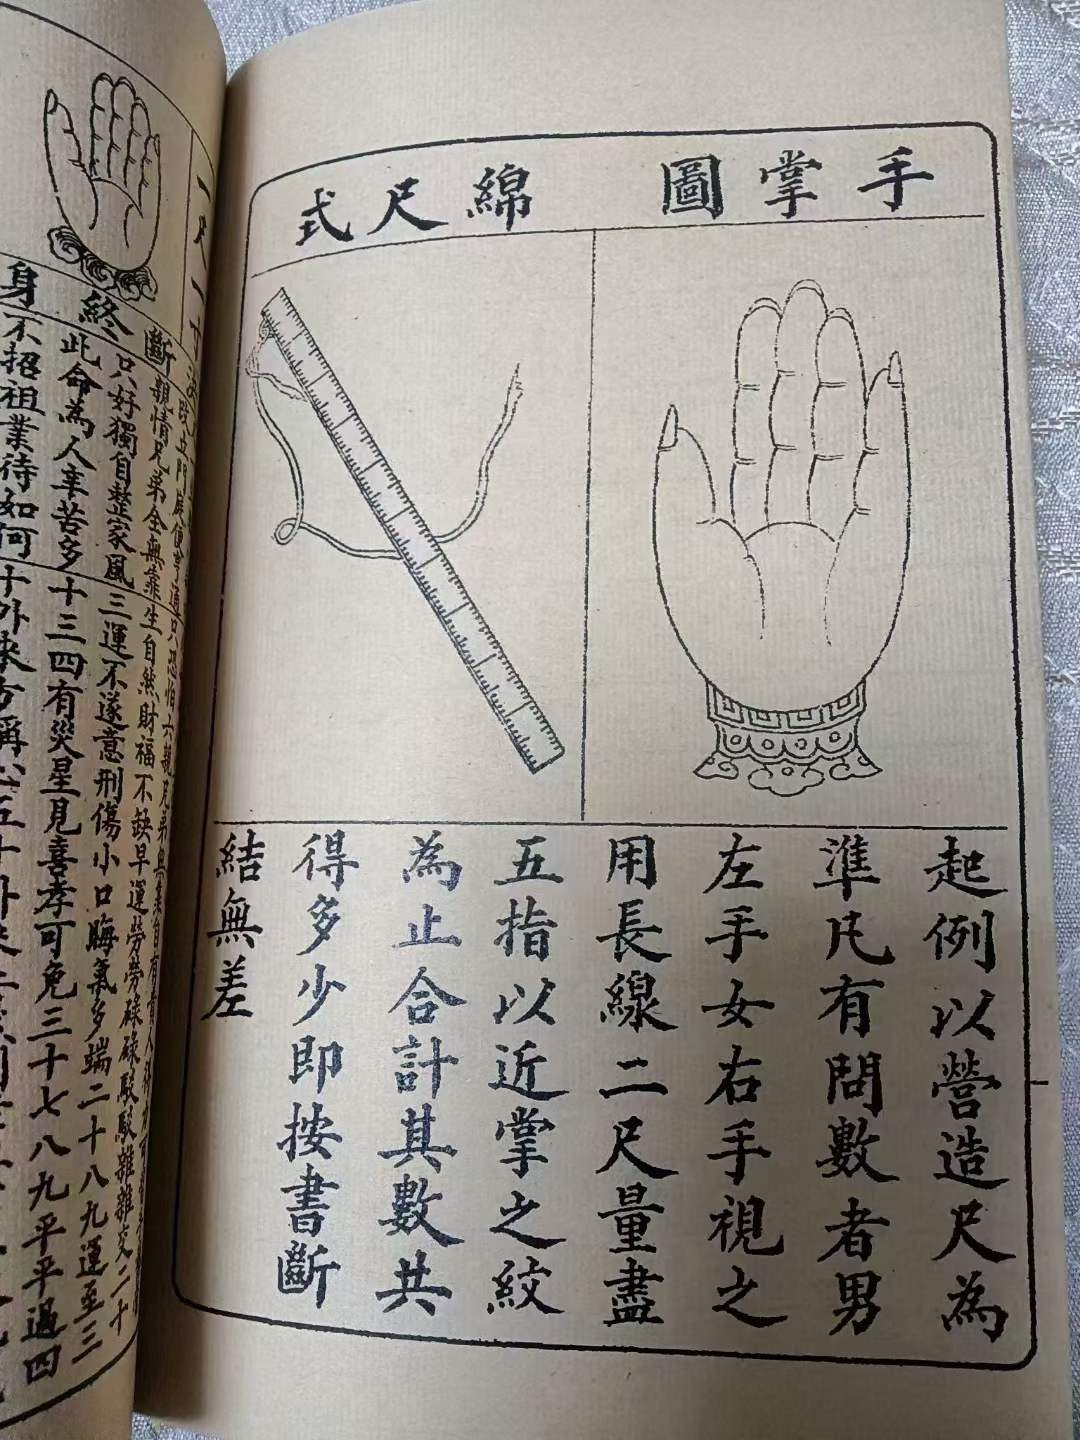 手掌圖
綿尺式
起例以營造尺為
準凡有問數者男
左手女右手視之
用長線二尺量盡
五指以近掌之紋
為止合計其數共
得多少即按書斷
結無差
一尺一寸
斷
終
身
親情兄弟全無靠生自然財福不缺早運勞勞碌碌駁雜雜交二十
只好獨自整家風三運不遂意刑傷小口晦氣多端二十八九運至三
此命為人辛苦多十三四有災星見喜孝可免三十七八九平平過四
不招祖業待如何